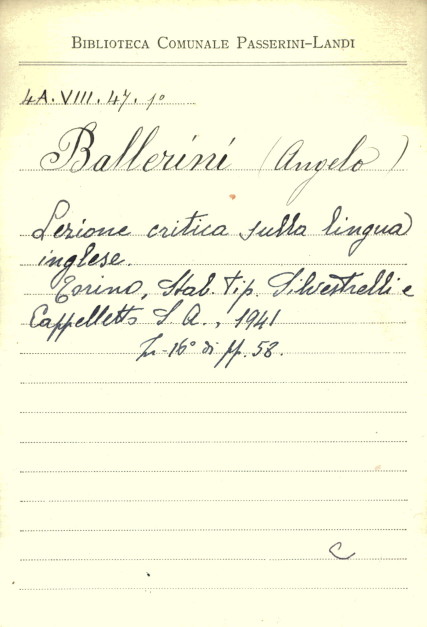 BIBLIOTECA COMUNALE PASSERINI-LANDI
4A.VIII.47.1º
Ballerini (Angelo)
Lezione critica sulla lingua
inglese.
Torino, Stab. tip. Silvestrelli e
Cappelletto S. A., 1941
In-16° di pp. 58.
C